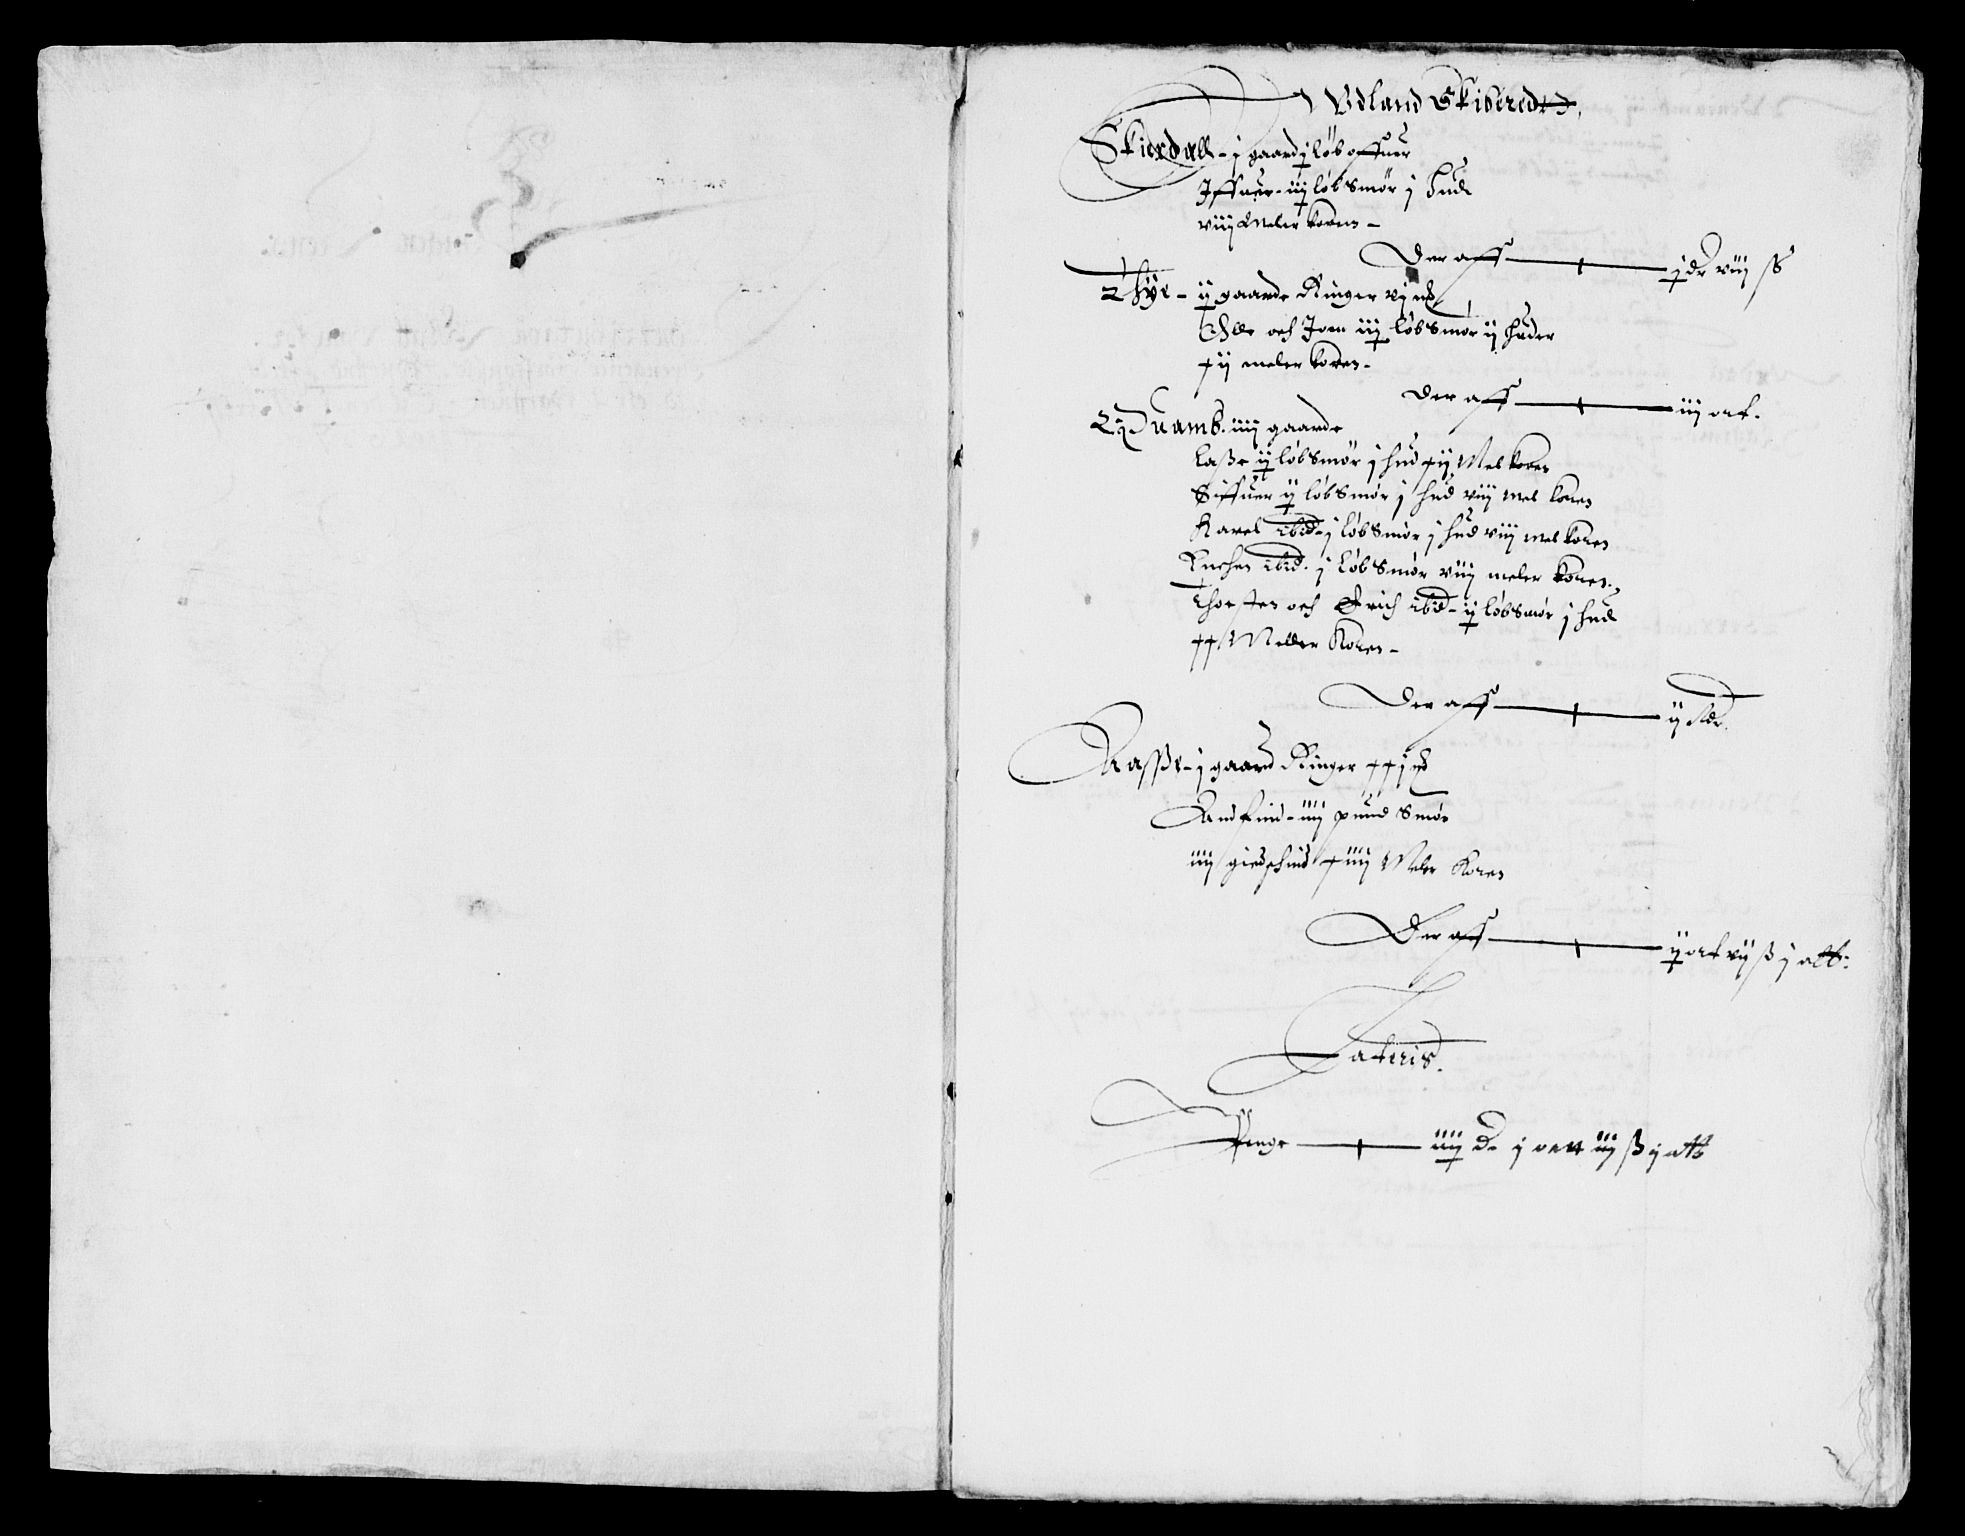 Vdland Skibredt
Skierdall - j gaard j løb offuer
Iffuer - iij løb Smør j hud
viij Meler korn -
Der aff ——— j dr viij ß
Thye - ij gaarde Ringer vj nd
Olle och Joen iiij løb Smør ij huder
xij meler korn -
Der aff ——— iij ort.
Quamb. iiij gaarde
Laße ij løb smør j hud xij Mel korn
Siffuer ij løb Smør j hud viij mel korn
Karel ibid - j løb Smør j hud viij mel korn
ibid. j løb Smør viij meler korn.
Thorsten och Erich ibid - ij løb smør j hud
xx Meller Korn -
Der aff ——— ij
Aasße - j gaard Ringer xxj nd
Amfind - iiij pund Smør
iiij giedschind xiiij Meler Korn
Der aff ——— ij ort vij ß j alb:
Lateris.
Penge ——— iiij D. j ort iij ß j alb